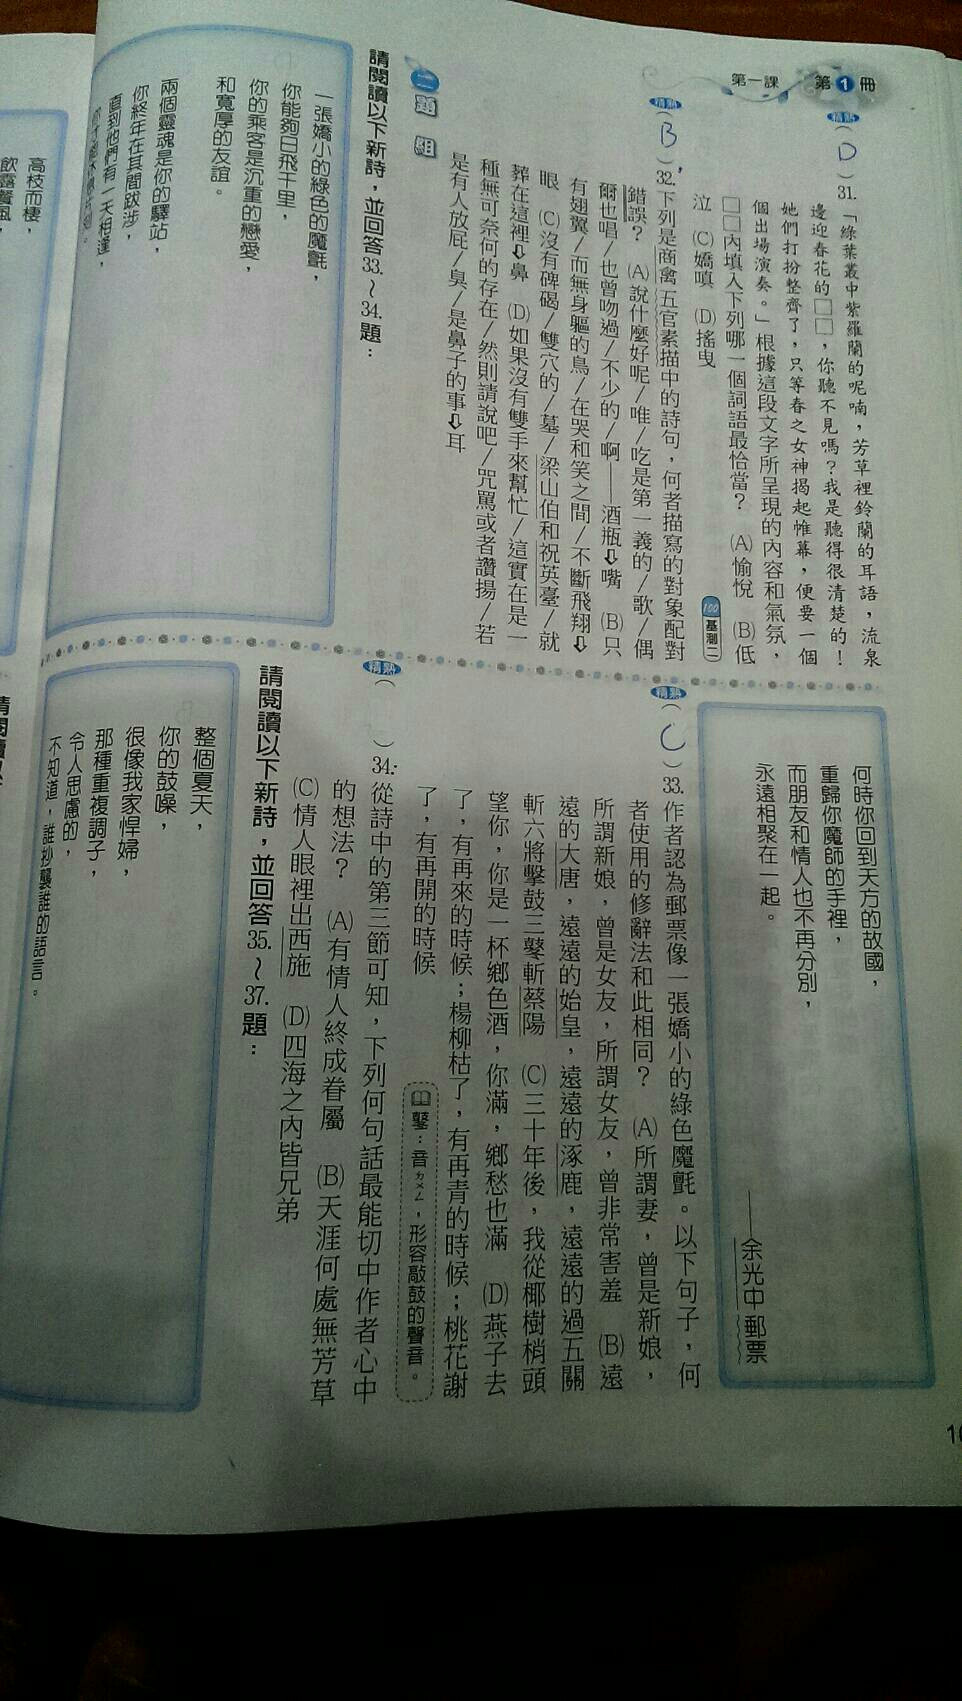 第1冊
第一課
精熟
(D)31.「綠葉叢中紫羅蘭的呢喃，芳草裡鈴蘭的耳語，流泉
邊迎春花的□□，你聽不見嗎？我是聽得很清楚的！
她們打扮整齊了，只等春之女神揭起帷幕，便要一個
個出場演奏。」根據這段文字所呈現的內容和氣氛，
□□內填入下列哪一個詞語最恰當？ (A)愉悅 (B)低
泣 (C)嬌嗔 (D)搖曳
100基測二
精熟
(B)32.下列是商禽五官素描中的詩句，何者描寫的對象配對
錯誤？ (A)說什麼好呢/唯/吃是第一義的/歌/偶
爾也唱/也曾吻過/不少的/啊——酒瓶⇨嘴 (B)只
有翅翼/而無身軀的鳥/在哭和笑之間/不斷飛翔⇨
眼 (C)沒有碑碣/雙穴的/墓/梁山伯和祝英臺/就
葬在這裡⇨鼻 (D)如果沒有雙手來幫忙/這實在是一
種無可奈何的存在/然則請說吧/咒罵或者讚揚/若
是有人放屁/臭/是鼻子的事⇨耳
二 題組
請閱讀以下新詩，並回答33.～34.題：
一張嬌小的綠色的魔氈，
你能夠日飛千里，
你的乘客是沉重的戀愛，
和寬厚的友誼。
兩個靈魂是你的驛站，
你終年在其間跋涉，
直到他們有一天相逢，
何時你回到天方的故國，
重歸你魔師的手裡，
而朋友和情人也不再分別，
永遠相聚在一起。
——余光中郵票
精熟
(C)33.作者認為郵票像一張嬌小的綠色魔氈。以下句子，何
者使用的修辭法和此相同？ (A)所謂妻，曾是新娘，
所謂新娘，曾是女友，所謂女友，曾非常害羞 (B)遠
遠的大唐，遠遠的始皇，遠遠的涿鹿，遠遠的過五關
斬六將擊鼓三鼕斬蔡陽 (C)三十年後，我從椰樹梢頭
望你，你是一杯鄉色酒，你滿，鄉愁也滿 (D)燕子去
了，有再來的時候；楊柳枯了，有再青的時候；桃花謝
了，有再開的時候
鼕：音ㄉㄨㄥ，形容敲鼓的聲音。
精熟
( )34.從詩中的第三節可知，下列何句話最能切中作者心中
的想法？ (A)有情人終成眷屬 (B)天涯何處無芳草
(C)情人眼裡出西施 (D)四海之內皆兄弟
請閱讀以下新詩，並回答35.～37.題：
整個夏天，
你的鼓噪，
很像我家悍婦，
那種重複調子，
令人思慮的，
不知道，誰抄襲誰的語言。
高枝而棲，
飲露餐風，